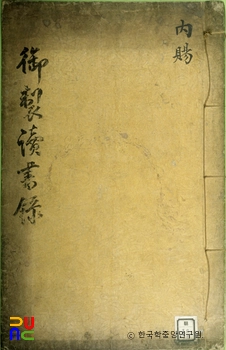 內賜
御製讀書錄
© 한국학중앙연구원